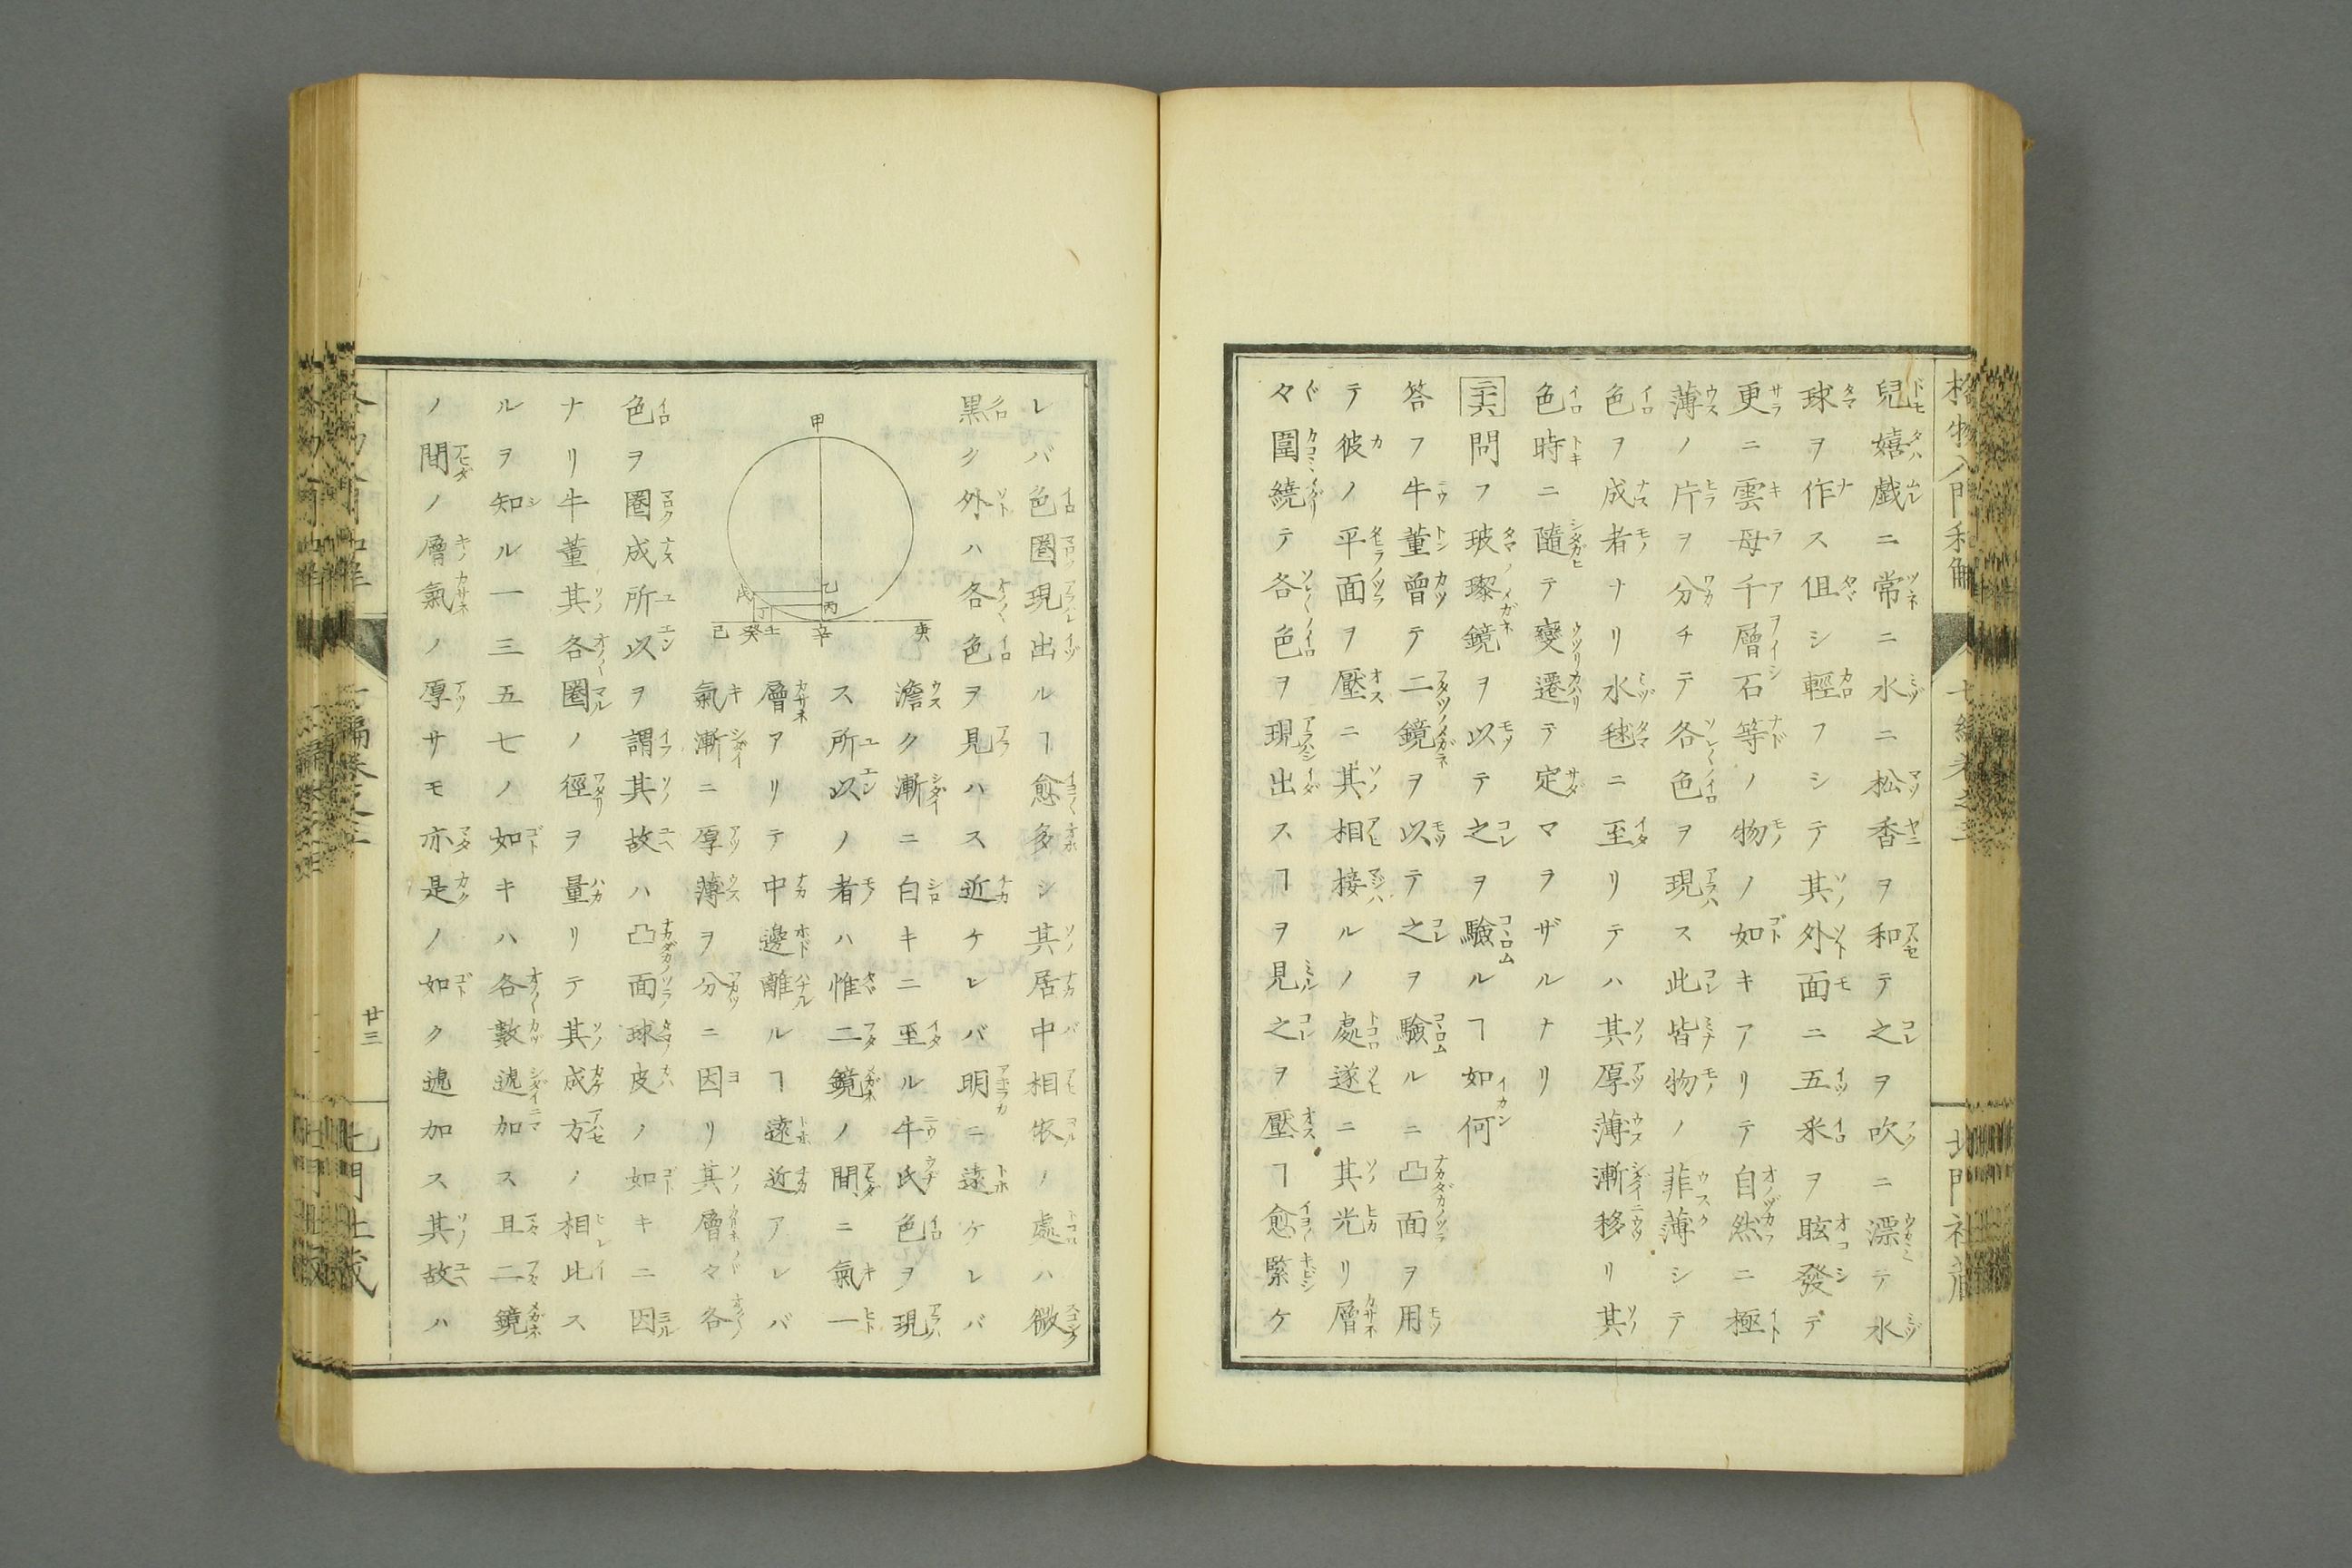 兒嬉戲ニ常ニ水ニ松香ヲ和テ之ヲ吹ニ漂テ水
球ヲ作ス但シ輕フシテ其外面ニ五釆ヲ眩發デ
更ニ雲母千層石等ノ物ノ如キアリテ自然ニ極
薄ノ片ヲ分チテ各色ヲ現ス此皆物ノ菲薄シテ
色ヲ成者ナリ水毬ニ至リテハ其厚薄漸移リ其
色時ニ隨テ變遷テ定マヲザルナリ
三十六 問フ玻瓈鏡ヲ以テ之ヲ驗ルヿ如何
答フ牛董曾テ二鏡ヲ以テ之ヲ驗ルニ凸面ヲ用
テ彼ノ平面ヲ壓ニ其相接ルノ處遂ニ其光リ層
々圍繞テ各色ヲ現出スヿヲ見之ヲ壓ヿ愈緊ケ
格物入門和解 七編卷之三 北門社
レバ色圏現出ルヿ愈多シ其居中相依ノ處ハ微
黒ク外ハ各色ヲ見ハス近ケレバ明ニ遠ケレバ
澹ク漸ニ白キニ至ル牛氏色ヲ現
ス所以ノ者ハ惟二鏡ノ間ニ氣一
層アリテ中邊離ルヿ遠近アレバ
氣漸ニ厚薄ヲ分ニ因リ其層々各
甲
乙
丙
戊
丁
己 癸 壬 辛 庚
色ヲ圏成所以ヲ謂其故ハ凸面球皮ノ如キニ因
ナリ牛董其各圏ノ徑ヲ量リテ其成方ノ相比ス
ルヲ知ル一三五七ノ如キハ各數遞加ス且二鏡
ノ間ノ層氣ノ厚サモ亦是ノ如ク遞加ス其故ハ
廿三